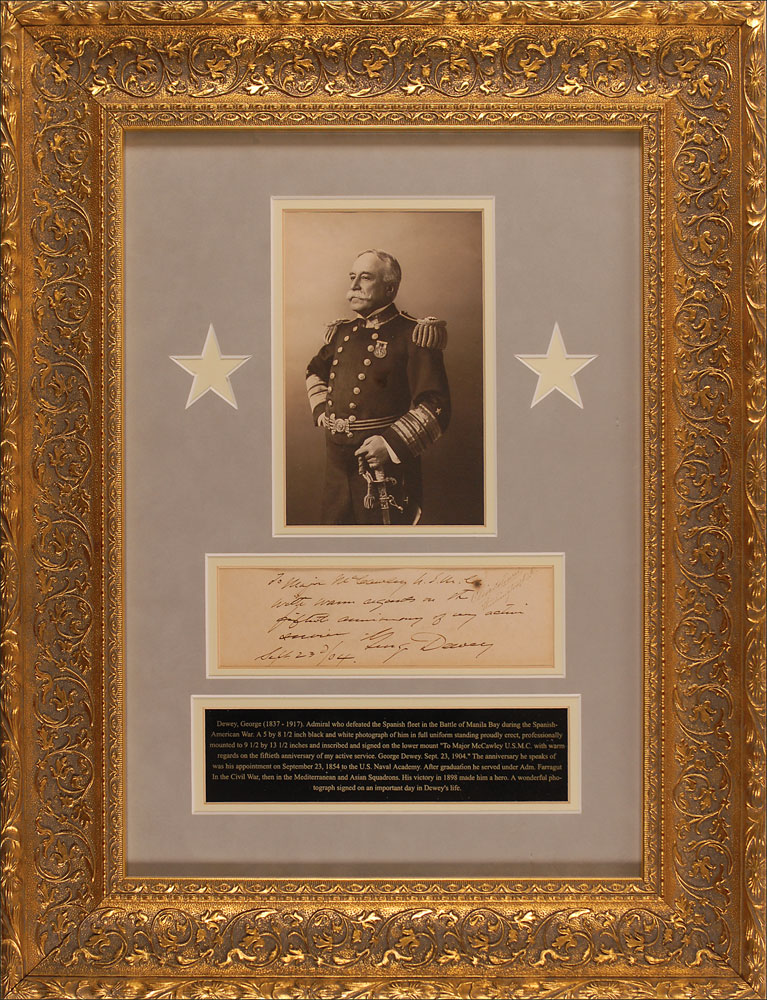 To Major McCawley U.S.M.C.
With warm regards on the
fiftieth anniversary of my active
service George Dewey
Sept. 23d/04.
Dewey, George (1837 - 1917). Admiral who defeated the Spanish fleet in the Battle of Manila Bay during the Spanish-
American War. A 5 by 8 1/2 inch black and white photograph of him in full uniform standing proudly erect, professionally
mounted to 9 1/2 by 13 1/2 inches and inscribed and signed on the lower mount "To Major McCawley U.S.M.C. with warm
regards on the fiftieth anniversary of my active service. George Dewey. Sept. 23, 1904." The anniversary he speaks of
was his appointment on September 23, 1854 to the U.S. Naval Academy. After graduation he served under Adm. Farragut
In the Civil War, then in the Mediterranean and Asian Squadrons. His victory in 1898 made him a hero. A wonderful pho-
tograph signed on an important day in Dewey's life.